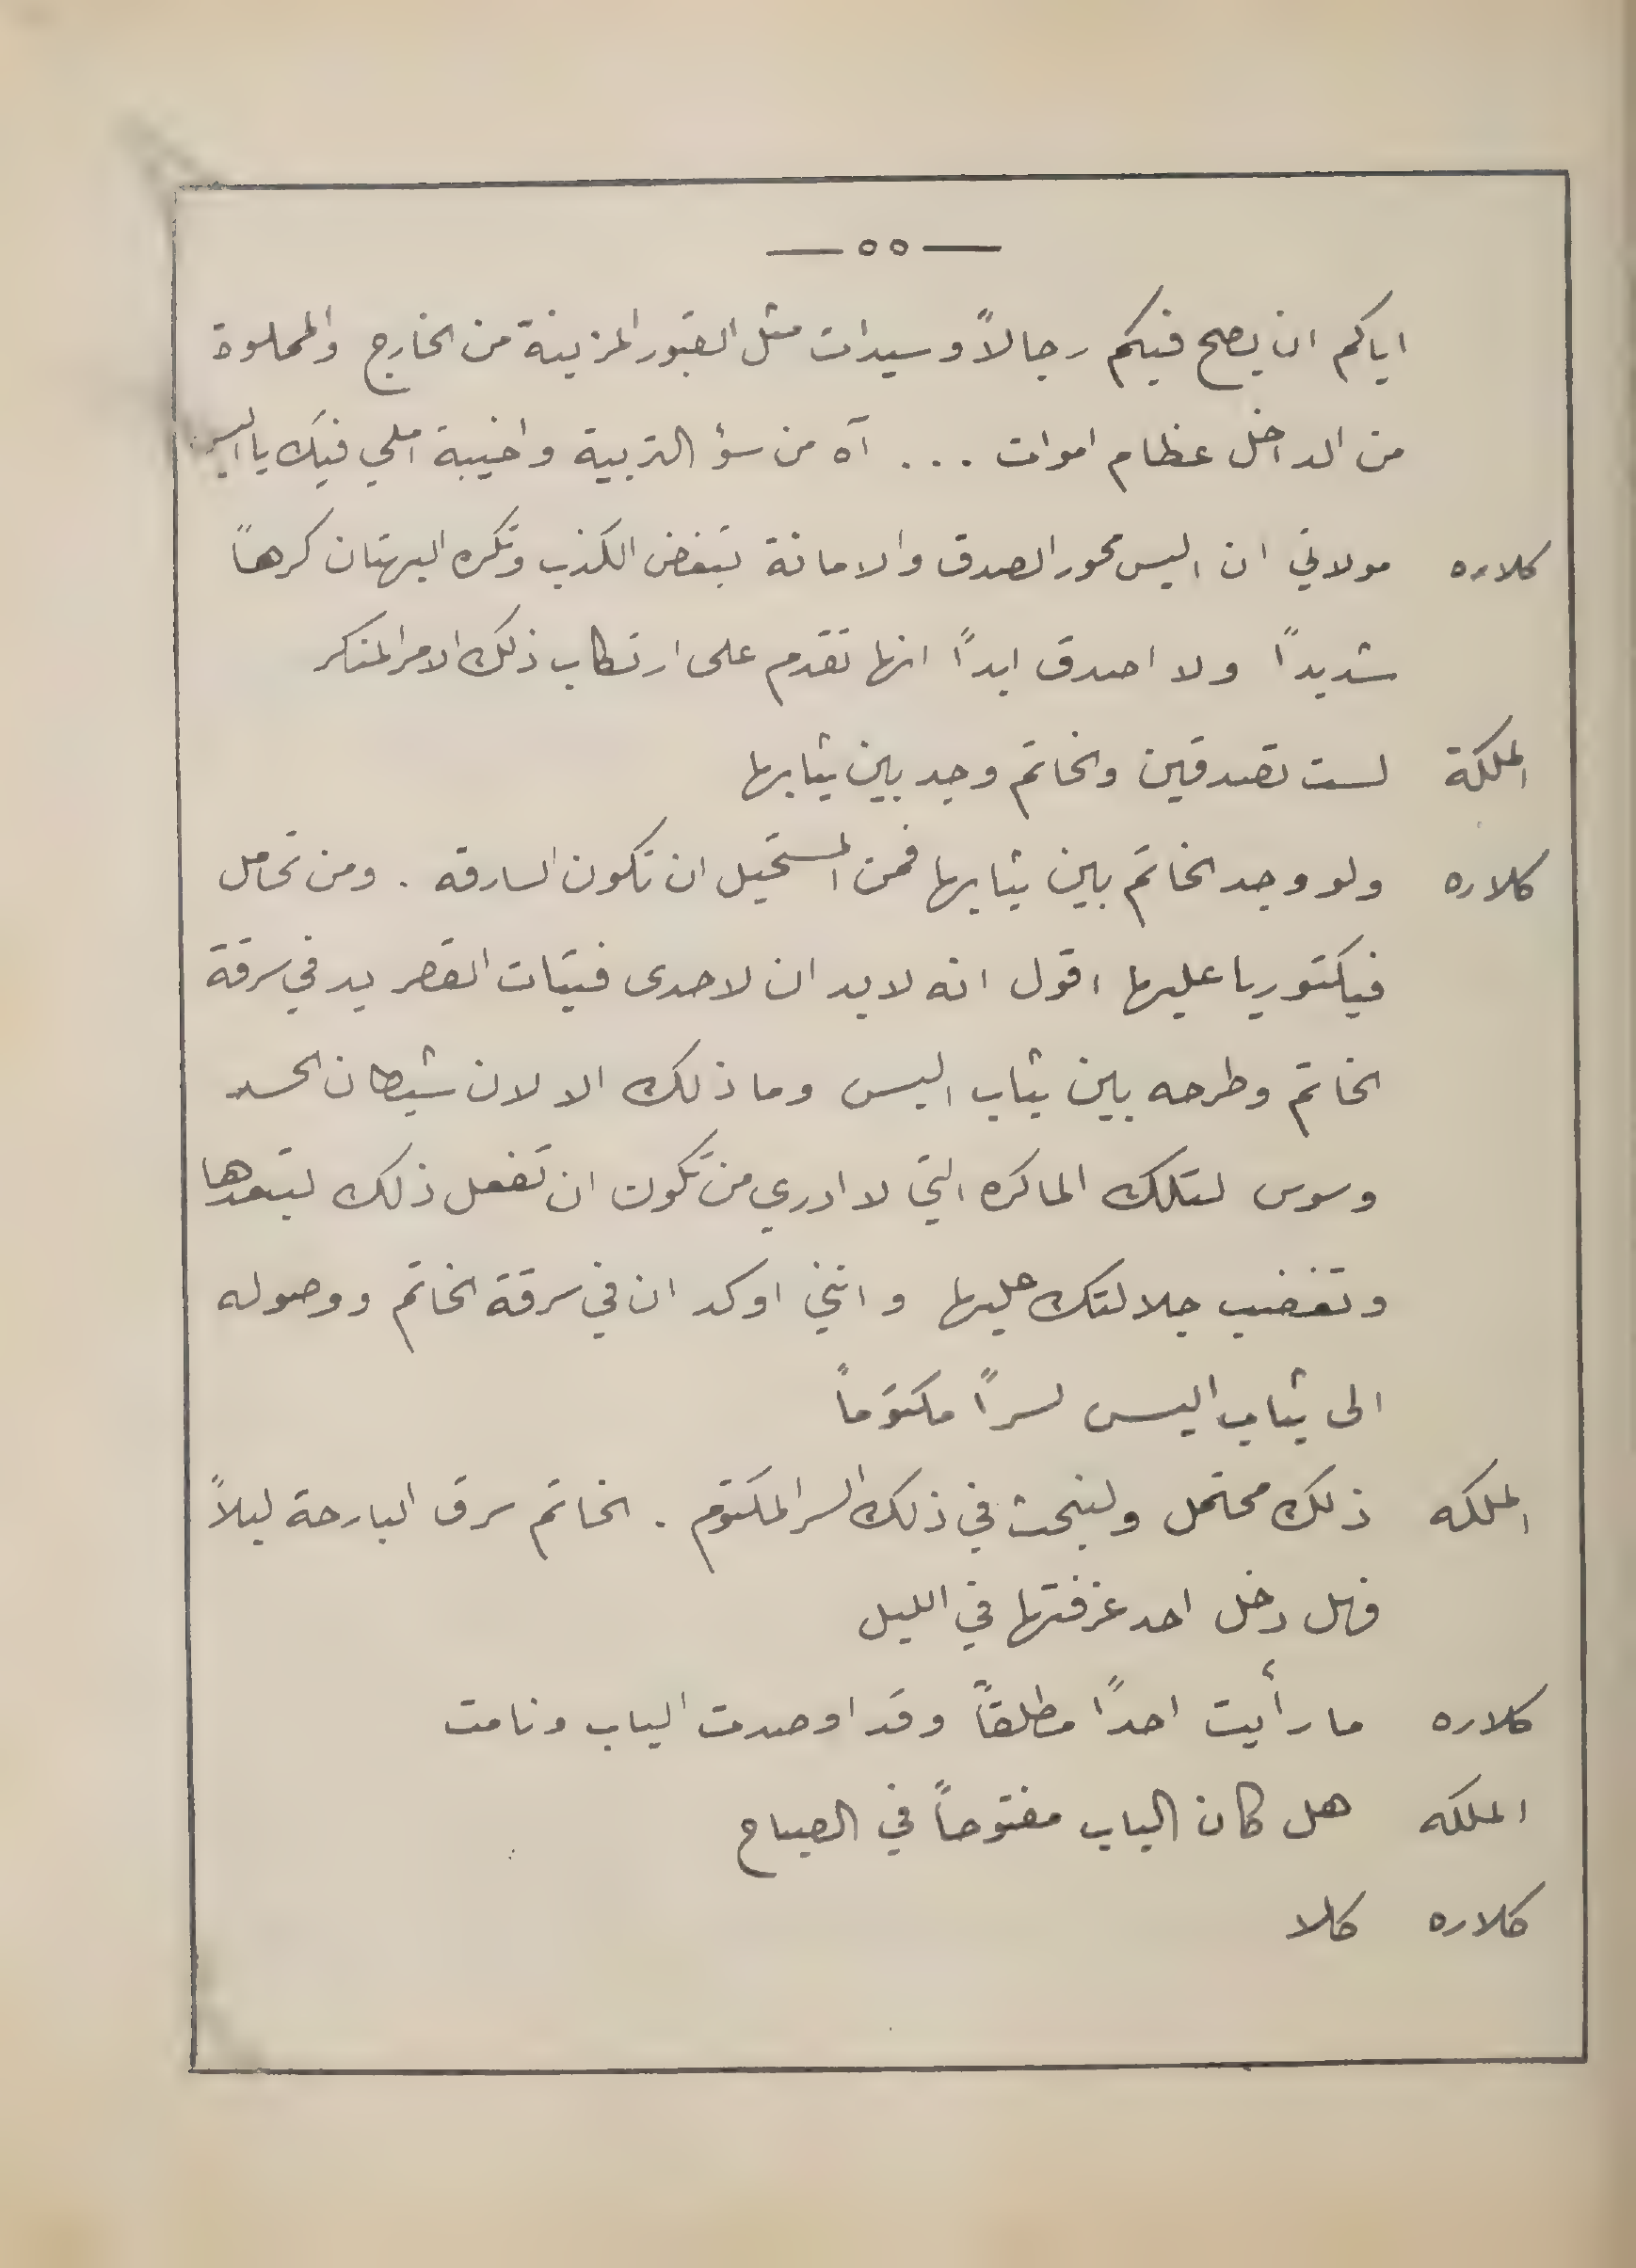 — ٥٥ —
اياكم ان يصح فيكم رجالاً وسيدات مثل القبور المزينة من الخارج والمملوة
من الداخل عظام اموات ... آه من سؤ التربية واخيبة املي فيك يا اليس
كلاره مولاتي ان اليس محور الصدق والامانة تبغض الكذب وتكره البهتان كرهاً
شديداً ولا اصدق ابداً انها تقدم على ارتكاب ذلك الامر المنكر
الملكة لست تصدقين والخاتم وجد بين ثيابها
كلاره ولو وجد الخاتم بين ثيابها فمن المستحيل ان تكون السارقه . ومن تحامل
فيكتوريا عليها اقول انه لابد ان لاحدى فتيات القصر يد في سرقة
الخاتم وطرحه بين ثياب اليس وما ذلك الا لان شيطان الحسد
وسوس لتلك الماكره التي لا ادري من تكون ان تفعل ذلك لتبعدها
وتغضب جلالتك عليها وانني اوكد ان في سرقة الخاتم ووصوله
الى ثياب اليس لسراً مكتوماً
الملكه ذلك محتمل ولنبحث في ذلك السر المكتوم . الخاتم سرق البارحة ليلاً
فهل دخل احد غرفتها في الليل
كلاره ما رأيت احداً مطلقاً وقد اوصدت الباب ونامت
الملكه هل كان الباب مفتوحاً في الصباح
كلاره كلا